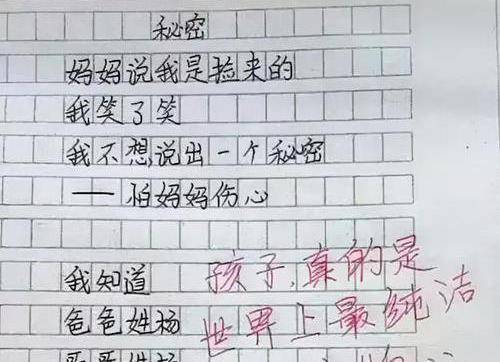 秘密
妈妈说我是捡来的
我笑了笑
我不想说出一个秘密
——怕妈妈伤心
我知道
爸爸姓杨
哥哥姓杨
孩子,真的是
世界上最纯洁